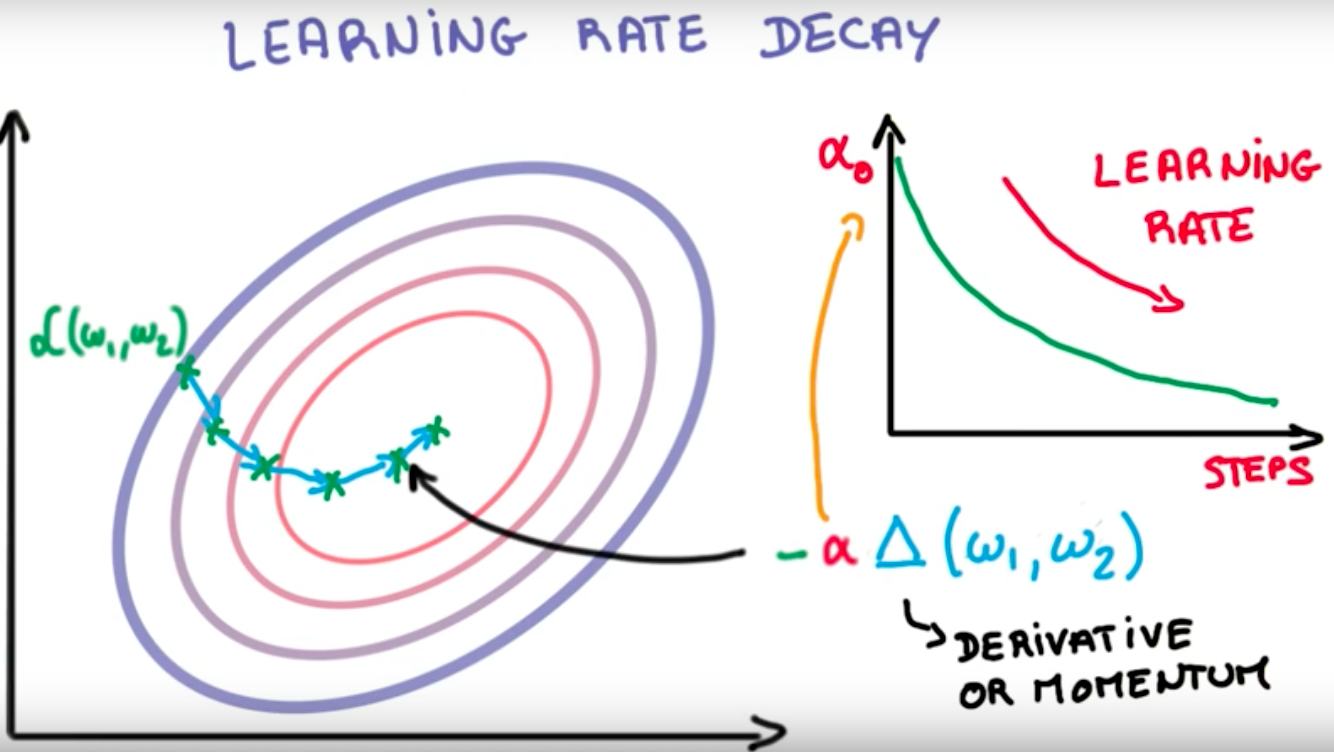 LEARNING RATE DECAY
ℒ(ω₁,ω₂)
α₀
LEARNING
RATE
STEPS
- α Δ (ω₁,ω₂)
DERIVATIVE
OR MOMENTUM